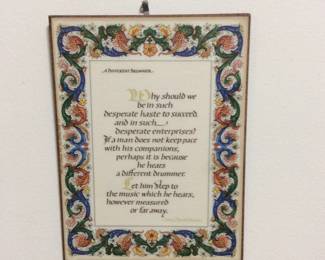 A DIFFERENT DRUMMER
Why should we
be in such
desperate haste to succeed
and in such
desperate enterprises?
If a man does not keep pace
with his companions,
perhaps it is because
he hears
a different drummer.
Let him step to
the music which he hears,
however measured
or far away.